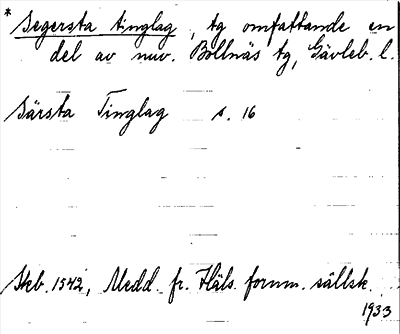 * Segersta tinglag, tg omfattande en
del av nuv. Bollnäs tg, Gävleb. l.
Särsta Tinglag s. 16
Skb. 1542, Medd. fr. Häls. fornm. sällsk.
1933